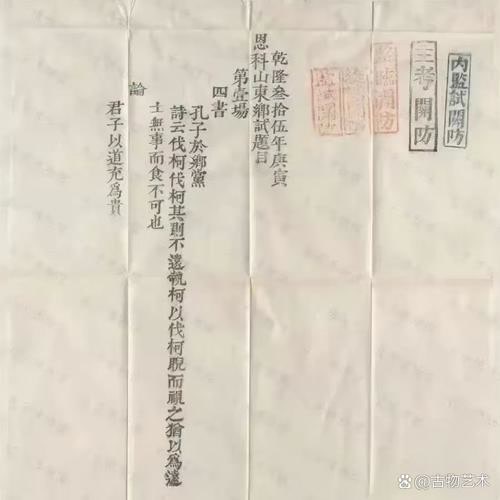 內監試關防
主考關防
監臨關防
乾隆叁拾伍年庚寅
恩科山東鄉試題目
第壹塲
四書
孔子於鄉黨
詩云伐柯伐柯其則不遠執柯以伐柯睨而視之猶以爲遠
士無事而食不可也
論
君子以道充爲貴
古物艺术